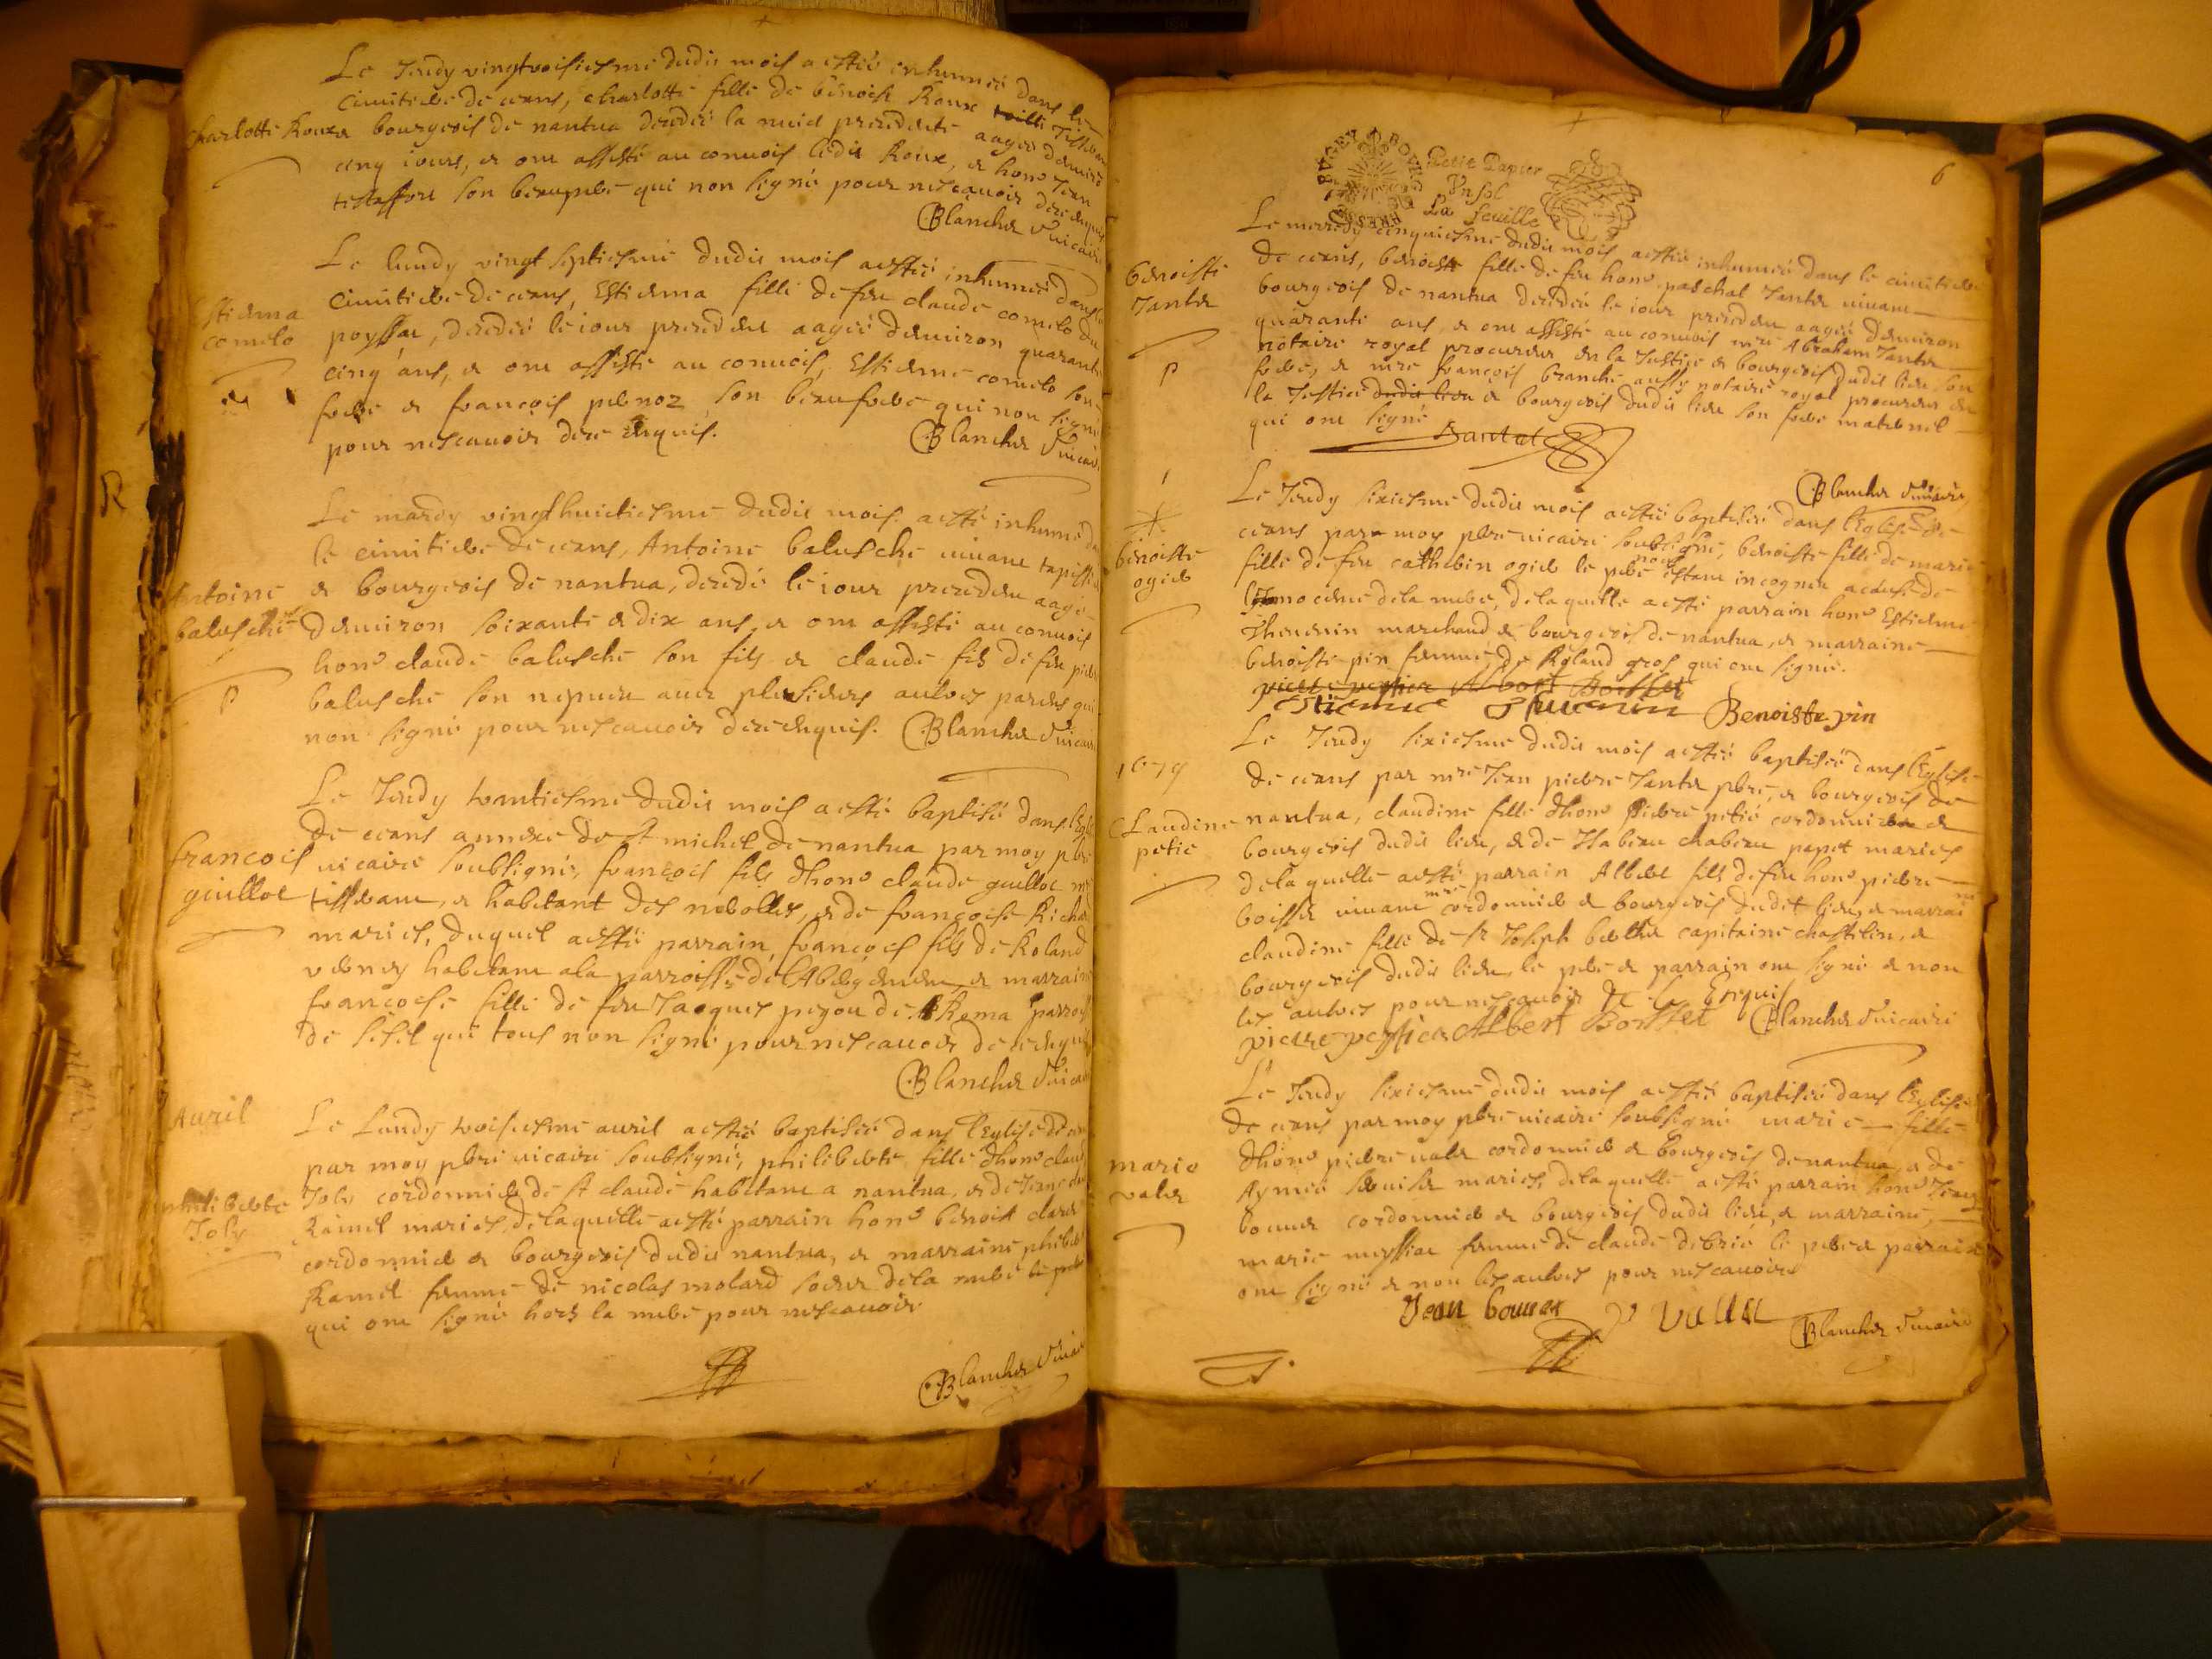 Le Jeudy vingtroisiesme dudit mois a esté inhumée dans le
cimitiere de ceans, charlotte fille de benoist Roux
charlotte Roux
et bourgeois de nantua decedée la nuict precedente aagée denviron
cinq iours, et ont assisté au convois ledit Roux, et hone Jean
son beaupere qui non signé pour nescavoir de ce enquis
Blanchet vicaire
Le lundy vingt septiesme dudit mois a esté inhumée dans le
cimitiere de ceans, Estienna fille de feu claude cometo du
Estienna
cometo
poyssat, decedée le iour precedent aagée denviron quarante
cinq ans, et ont assisté au convois, Estienne cometo son
frere et françois pernoz son beaufrere qui non signé
pour nescavoir de ce enquis.
Blanchet vicaire
Le mardy vingthuictiesme dudit mois a esté inhumé dans
le cimitiere de ceans, Antoine balusche vivant tapissier
Antoine
balusche
et bourgeois de nantua, decedé le iour precedent aagé
denviron soixante et dix ans, et ont assisté au convois
hone claude balusche son fils et claude fils de feu
balusche son nepveu avec plusieurs autres parens qui
non signé pour nescavoir de ce enquis. Blanchet vicaire
Le Jeudy trentiesme dudit mois a esté baptisé dans
de ceans annexe de st michel de nantua par moy pbre
francois
guillot
vicaire soubsigné, françois fils dhone claude guillot
tisserant, et habitant des nerolles, et de françoise Richard
maries, duquel a esté parrain françois fils de Roland
habitant a la parroisse de et marraine
françoise fille de feu Jacques pegon de parroisse
de qui tous non signé pour nescavoir de ce enquis
Blanchet vicaire
Avril
Le Lundy troisiesme avril a esté baptisée dans l'Eglise de ceans
par moy pbre vicaire soubsigné, philiberte fille dhone claude
philiberte
Joly
Joly cordonnier de st claude habitant a nantua, et de
Ramel maries, de laquelle a esté parrain hone benoist
cordonnier et bourgeois dudit nantua, et marraine philiberte
Ramel femme de nicolas molard soeur de la mere le pere
qui ont signé hors la mere pour nescavoir
Blanchet vicaire
BUGEY
Petit Papier
Un sol
La feuille
6
Le mercredy cinquiesme dudit mois a esté inhumée dans le cimitiere
de ceans, benoiste fille de feu hone paschal Jantet vivant
benoiste
Jantet
bourgeois de nantua decedée le iour precedent aagée denviron
quarante ans, et ont assisté au convois mre Abraham Jantet
notaire royal procureur en la Justice et bourgeois dudit lieu son
P
frere, et mre françois branche aussy notaire royal procureur en
la Justice dudit lieu et bourgeois dudit lieu son frere maternel
qui ont signé
Jantet
Blanchet vicaire
Le Jeudy sixiesme dudit mois a esté baptisée dans l'Eglise de
ceans par moy pbre vicaire soubsigné, benoiste fille de marie
benoiste
ogier
fille de feu catherin ogier le pere nous estant incogneu a cause de
de la mere, de laquelle a esté parrain hone Estienne
thevenin marchand et bourgeois de nantua, et marraine
benoiste pin femme de Roland gros qui ont signé.
pierre petier Albert Boisset
Estienne Thevenin Benoiste pin
1679
Le Jeudy sixiesme dudit mois a esté baptisée dans l'Eglise
de ceans par mre Jean pierre Jantet pbre, et bourgeois de
Claudine
petie
nantua, claudine fille dhone pierre petié cordonnier et
bourgeois dudit lieu, et de Isabeau chabeau papet maries
de laquelle a esté parrain Albert fils de feu hone pierre
boisset vivant mre cordonnier et bourgeois dudit lieu, et marraine
claudine fille de sr Joseph berthet capitaine chastelin, et
bourgeois dudit lieu, le pere et parrain ont signé et non
les autres pour nescavoir de ce Enquis
pierre petier Albert Boisset Blanchet vicaire
Le Jeudy sixiesme dudit mois a esté baptisée dans l'Eglise
de ceans par moy pbre vicaire soubsigné marie fille
marie
valet
dhone pierre valet cordonnier et bourgeois de nantua, et de
Aymée maries, de laquelle a esté parrain hone Jean
bouvet cordonnier et bourgeois dudit lieu, et marraine,
marie meyssiat femme de claude debrié le pere et parrain
ont signé et non les autres pour nescavoir
Jean bouvet P valet Blanchet vicaire